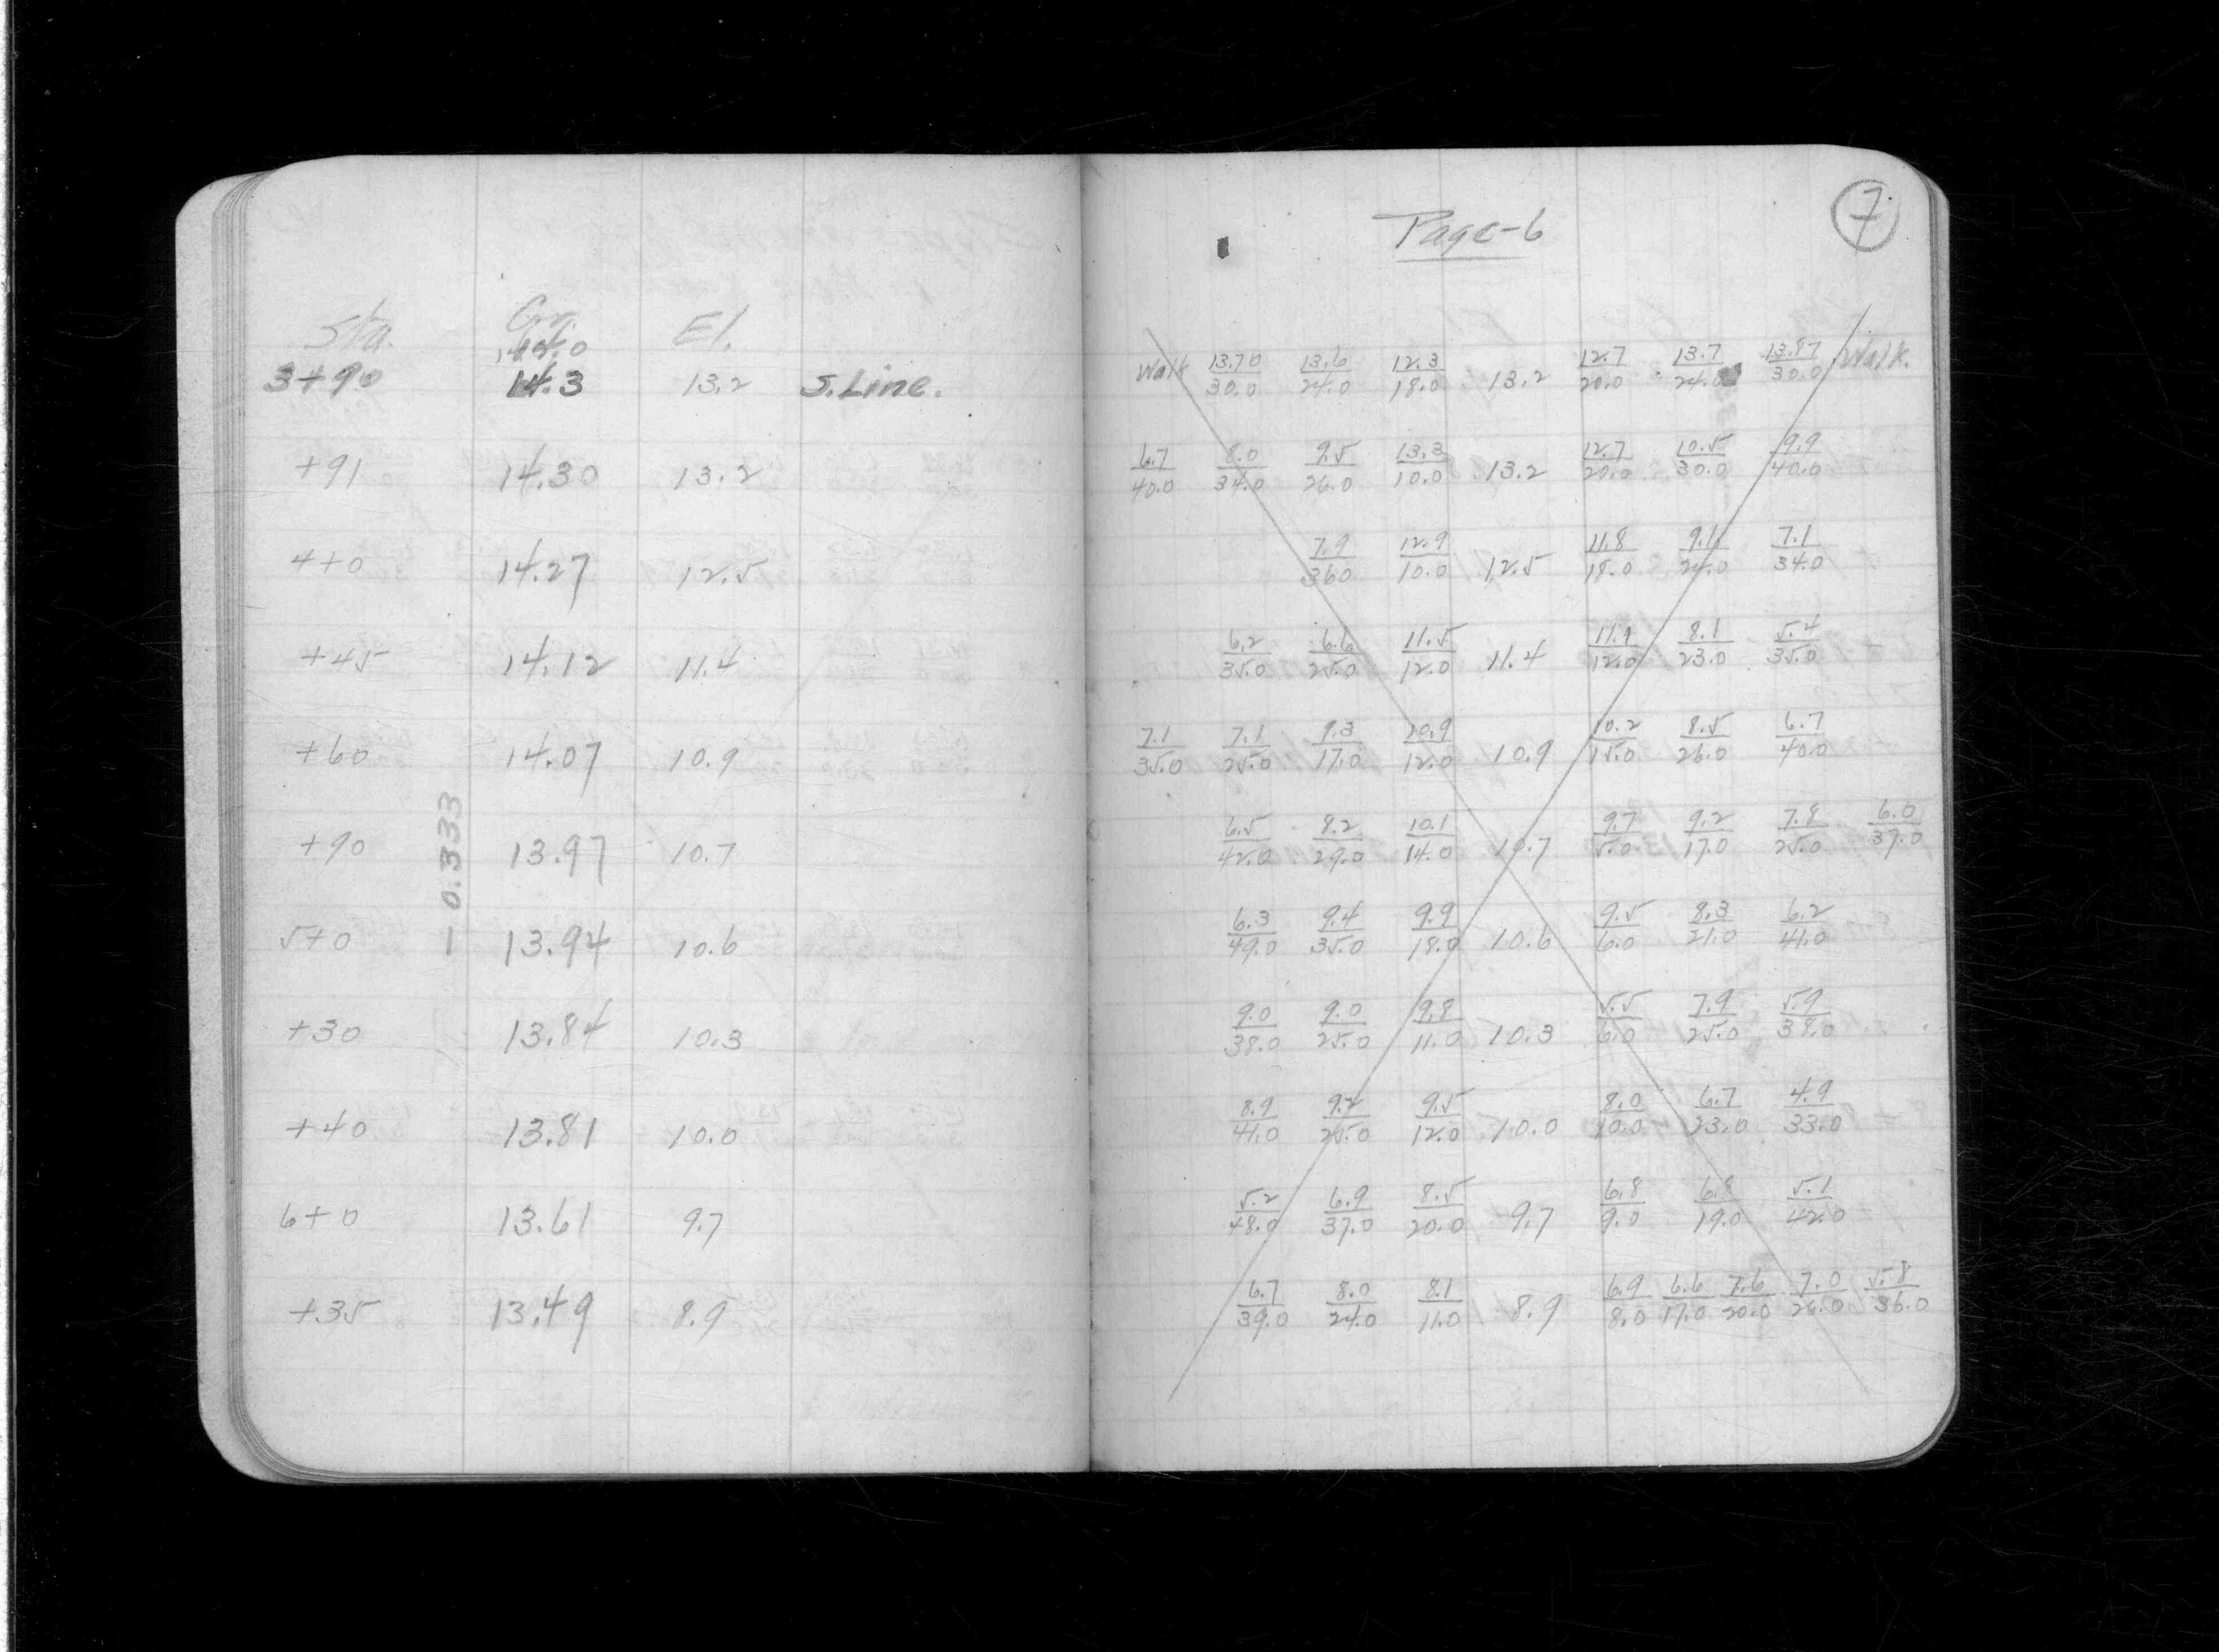 Sta. Gr. El.
3+90 14.3 13.2 S. Line.
+91 14.30 13.2
4+0 14.27 12.5
+45 14.12 11.4
+60 14.07 10.9
+90 13.97 10.7
5+0 13.94 10.6
+30 13.84 10.3
+40 13.81 10.0
6+0 13.61 9.7
+35 13.49 8.9
- 0.333
Page-6 7
Walk 13.70/30.0 13.6/24.0 12.3/18.0 13.2 12.7/20.0 13.7/24.0 13.87/30.0 Walk.
6.7/40.0 8.0/34.0 9.5/26.0 13.3/10.0 13.2 12.7/20.0 10.5/30.0 9.9/40.0
7.9/36.0 12.9/10.0 12.5 11.8/18.0 9.1/24.0 7.1/34.0
6.2/35.0 6.6/25.0 11.5/12.0 11.4 11.9/12.0 8.1/23.0 5.4/35.0
7.1/35.0 7.1/25.0 9.3/17.0 10.9/12.0 10.9 10.2/15.0 8.5/26.0 6.7/40.0
6.5/42.0 8.2/29.0 10.1/14.0 10.7 9.7/5.0 9.2/17.0 7.8/25.0 6.0/37.0
6.3/49.0 9.4/35.0 9.9/18.0 10.6 9.5/6.0 8.3/21.0 6.2/41.0
9.0/38.0 9.0/25.0 9.8/11.0 10.3 5.5/6.0 7.9/25.0 5.9/38.0
8.9/41.0 9.2/25.0 9.5/12.0 10.0 8.0/10.0 6.7/23.0 4.9/33.0
5.2/48.0 6.9/37.0 8.5/20.0 9.7 6.8/9.0 6.8/19.0 5.1/42.0
6.7/39.0 8.0/24.0 8.1/11.0 8.9 6.9/8.0 6.6/17.0 7.6/20.0 7.0/26.0 5.8/36.0